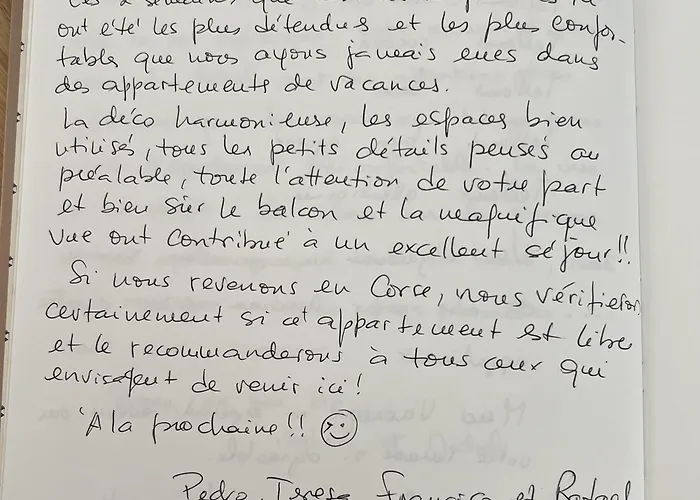 ont été les plus détendues et les plus confor-
tables que nous ayons jamais eues dans
des appartements de vacances.
La déco harmonieuse, les espaces bien
utilisés, tous les petits détails pensés au
préalable, toute l'attention de votre part
et bien sûr le balcon et la magnifique
vue ont contribué à un excellent séjour!!
Si nous revenons en Corse, nous vérifieron
certainement si cet appartement est libre
et le recommanderons à tous ceux qui
envisagent de venir ici!
'A la prochaine!!
Pedro, Teresa, Francisco et Rafael